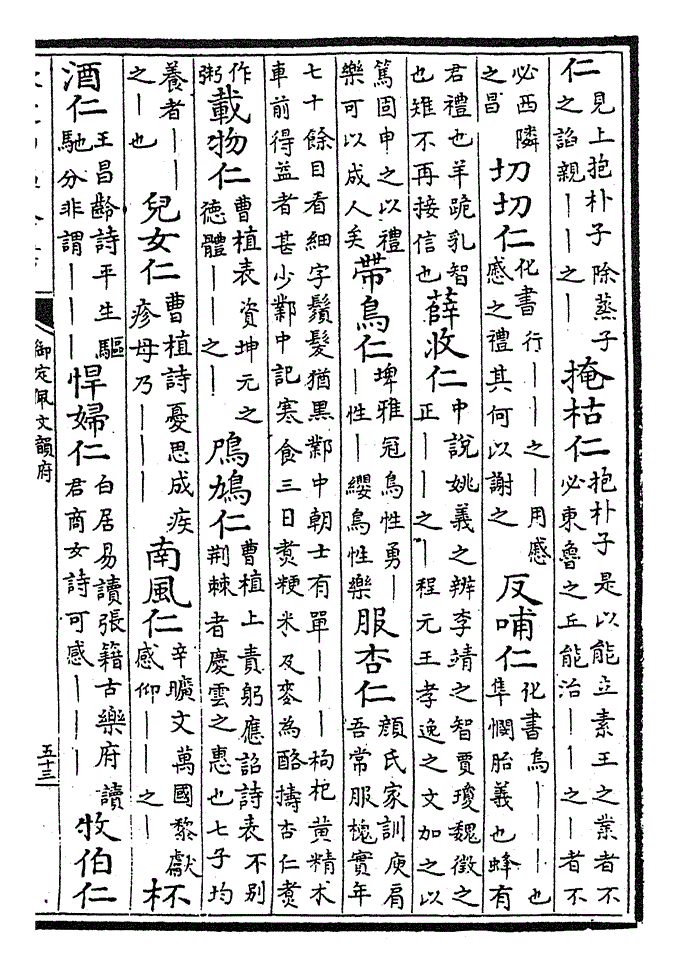 仁見上抱朴子除蒸子之諂親｜｜之｜掩枯仁抱朴子是以能立素王之業者不必東魯之丘能治｜｜之｜者不
必西隣之昌切切仁化書行｜｜之｜用感感之禮其何以謝之反哺仁化書烏｜｜｜也隼憫胎義也蜂有
君禮也羊跪乳智也雉不再接信也薛收仁中說姚義之辨李靖之智賈瓊魏徵之正｜｜之｜程元王孝逸之文加之以
篤固申之以禮樂可以成人矣帶鳥仁埤雅冠鳥性勇｜｜性｜纓鳥性樂服杏仁顏氏家訓庾肩吾常服槐實年
七十餘目看細字鬚髮猶黑鄴中朝士有單｜｜｜枸杞黃精朮車前得益者甚少鄴中記寒食三日煑粳米及麥為酪擣杏仁煑
作粥載物仁曹植表資坤元之德體｜｜之｜鳲鳩仁曹植上責躬應詔詩表不別荆棘者慶雲之惠也七子均
養者｜｜之｜也兒女仁曹植詩憂思成疾疹毋乃｜｜｜南風仁辛曠文萬國黎獻感仰｜｜之｜杯
酒仁王昌齡詩平生驅馳分非謂｜｜｜悍婦仁白居易讀張籍古樂府讀君商女詩可感｜｜｜牧伯仁
御定佩文韻府
五十三